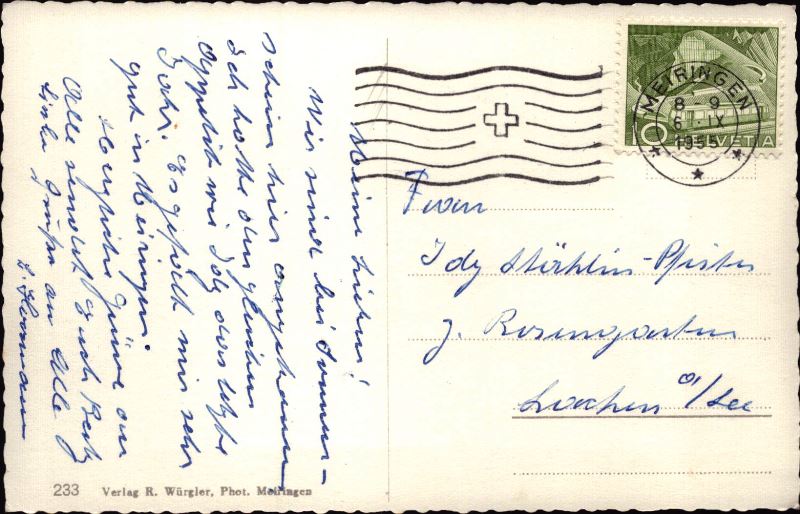 Meine Lieben!
Wir sind bei Sonnen-
schein hier angekommen
Ich hatte den gleichen
Appetit wie Idy das letzte
Jahr. Es gefällt mir sehr
gut in Meiringen.
Herzliche Grüsse an
Alle sendet Euch
Liebe Grüsse an Alle
MEIRINGEN
8-9
6. IX
1955
10 HELVETIA
Frau
Idy Stählin-Pfister
z. Rosengarten
Lachen a/See
233 Verlag R. Würgler, Phot. Meiringen